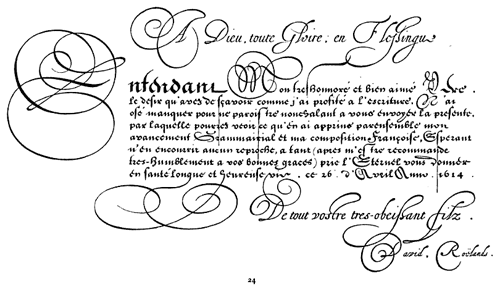 A Dieu, toute Gloire: en Flessingue
Entendant Mon treshonnoré et bien aimé Pere.
Le desir qu'aves de sçavoir comme j'ai profité a l'escriture. N'ai
osé manquer pour ne paroistre nonchalant a vous envoyer la presente,
par laquelle poures veoir ce qu'en ai apprins parensemble mon
avancement Grammairial et ma composition Françoise, Esperant
n'en encourir aucun reproche, a tant (apres m'estre recommandé
tres-humblement a vos bonnes graces) prie l'Eternel vous donner
en santé longue et heureuse vie. ce 26. d'Avril Anno. 1614.
De tout vostre tres-obeissant filz.
David. Roelands.
24